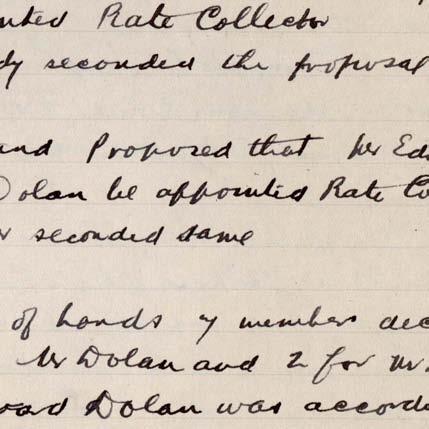 nted Rate Collector
dy seconded the proposal
and Proposed that Mr Ed
Dolan be appointed Rate Co
seconded same
of hands 7 members dec
Mr Dolan and 2 for Mr.
ward Dolan was accord